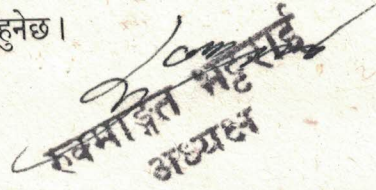 हुनेछ ।
रुक्माङ्गत भट्टराई
अध्यक्ष